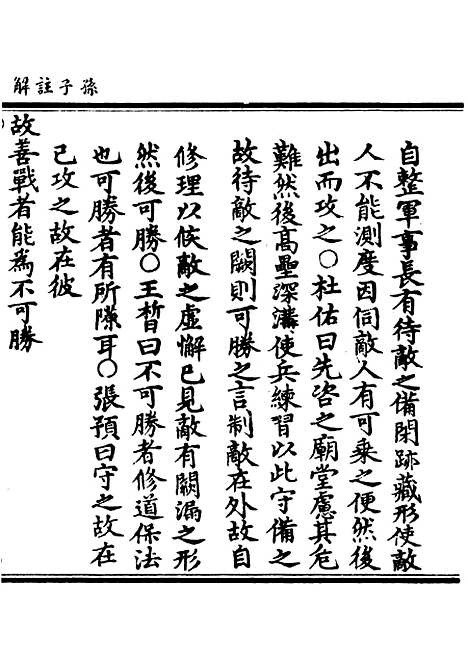 孫子註解
自整軍事長有待敵之備閑跡藏形使敵
人不能測度因伺敵人有可乘之便然後
出而攻之○杜佑曰先咨之廟堂慮其危
難然後高壘深溝使兵練習以此守備之
故待敵之闕則可勝之言制敵在外故自
修理以候敵之虛懈已見敵有闕漏之形
然後可勝○王晳曰不可勝者修道保法
也可勝者有所隙耳○張預曰守之故在
己攻之故在彼
故善戰者能爲不可勝